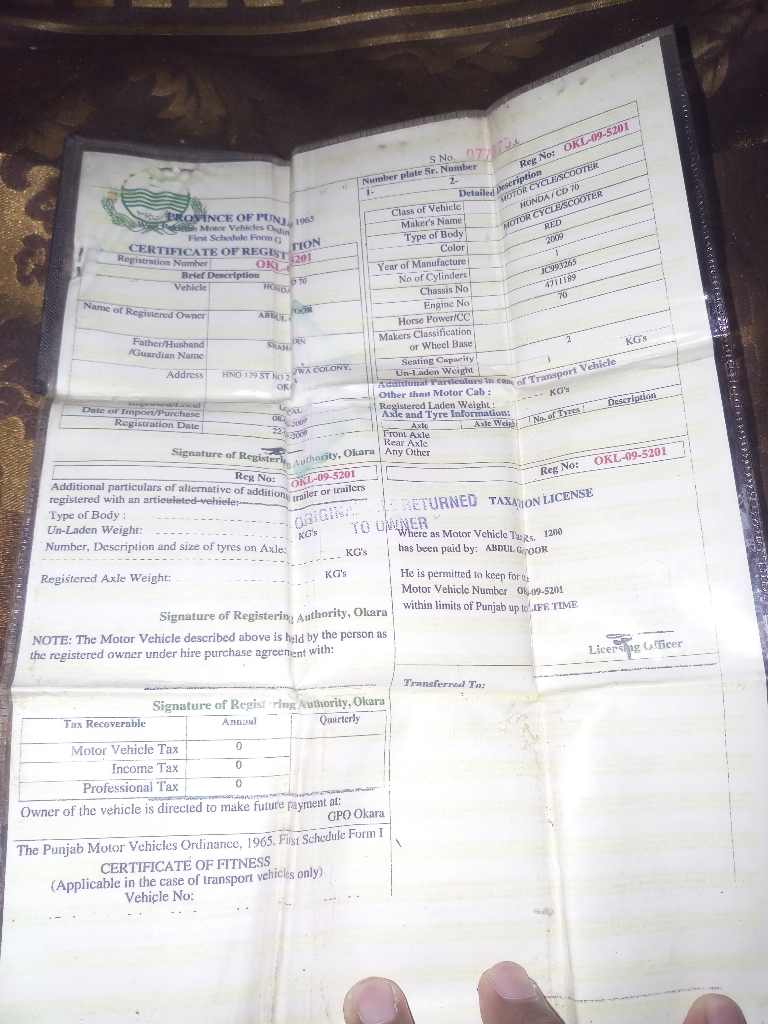 S No.
Number plate Sr. Number
1- 2-
Reg No: OKL-09-5201
Detailed Description
Class of Vehicle MOTOR CYCLE/SCOOTER
Maker's Name HONDA / CD 70
Type of Body MOTOR CYCLE/SCOOTER
Color RED
Year of Manufacture 2009
No of Cylinders 1
Chassis No JC993265
Engine No 4711189
Horse Power/CC 70
Makers Classification
or Wheel Base
Seating Capacity 2
Un-Laden Weight 1 KG's
Additional Particulars in case of Transport Vehicle
Other than Motor Cab :
Registered Laden Weight : KG's
Axle and Tyre Information:
Axle Axle Weight No. of Tyres Description
Front Axle
Rear Axle
Any Other
Reg No: OKL-09-5201
TAXATION LICENSE
Where as Motor Vehicle Tax Rs. 1200
has been paid by: ABDUL
He is permitted to keep for
Motor Vehicle Number OKL-09-5201
within limits of Punjab up to LIFE TIME
Licensing Officer
Transferred To:
PROVINCE OF PUNJ 1965
West Pakistan Motor Vehicles Ordin
First Schedule Form G
CERTIFICATE OF REGISTRATION
Registration Number OKL- 5201
Brief Description
Vehicle HONDA 70
Name of Registered Owner ABDUL
Father/Husband
/Guardian Name
Address HNO 179 ST NO 2 COLONY.
OK
Date of Import/Purchase
Registration Date 22- 2009
Signature of Registering Authority, Okara
Reg No: OKL-09-5201
Additional particulars of alternative of additional trailer or trailers
registered with an articulated vehicle:
Type of Body :
Un-Laden Weight: KG's
Number, Description and size of tyres on Axle: KG's
Registered Axle Weight: KG's
ORIGINAL RETURNED
TO OWNER
Signature of Registering Authority, Okara
NOTE: The Motor Vehicle described above is held by the person as
the registered owner under hire purchase agreement with:
Signature of Registering Authority, Okara
Tax Recoverable Annual Quarterly
Motor Vehicle Tax 0
Income Tax 0
Professional Tax 0
Owner of the vehicle is directed to make future payment at:
GPO Okara
The Punjab Motor Vehicles Ordinance, 1965. First Schedule Form I
CERTIFICATE OF FITNESS
(Applicable in the case of transport vehicles only)
Vehicle No: